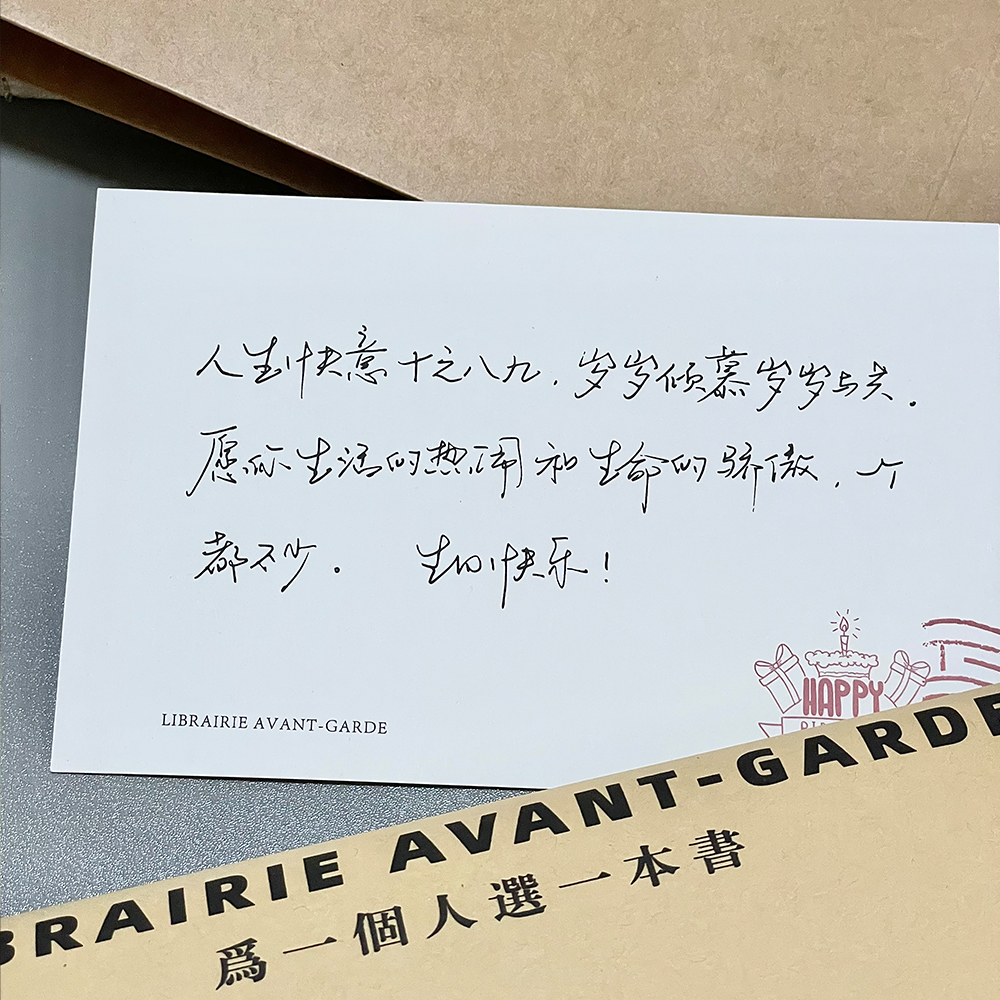 人生快意十之八九，岁岁倾慕岁岁与共。
愿你生活的热闹和生命的骄傲，一个
都不少。 生日快乐！
HAPPY
LIBRAIRIE AVANT-GARDE
BRAIRIE AVANT-GARDE
爲一個人選一本書